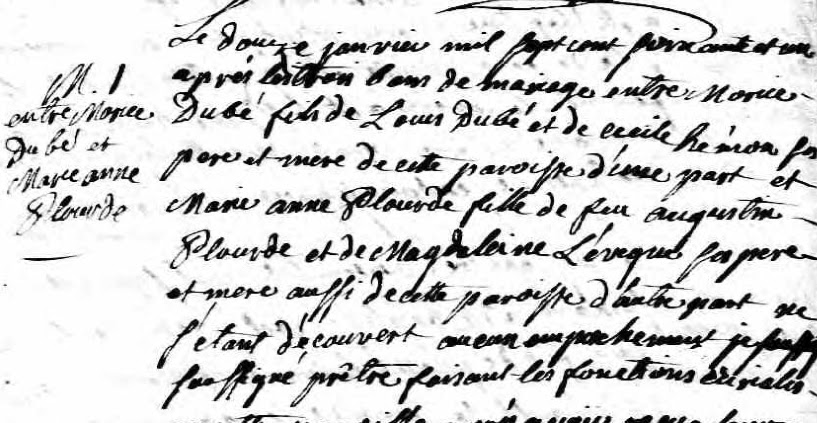 M. 1
entre Morice
Dubé et
Marie anne
Plourde
Le douze janvier mil sept cent soixante et un
après les trois bans de mariage entre Morice
Dubé fils de Louis Dubé et de cecile hémon ses
pere et mere de cette paroisse d'une part et
Marie anne Plourde fille de feu augustin
Plourde et de Magdeleine Lévêque ses pere
et mere aussi de cette paroisse d'autre part ne
s'étant découvert aucun empechement je
soussigné prêtre faisant les fonctions curiales